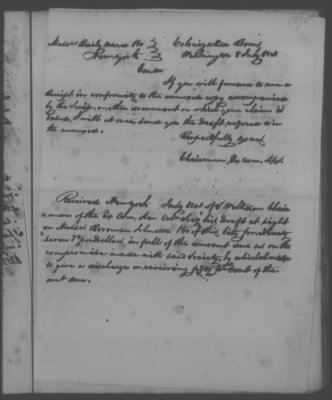 Messrs Baily Ward &Co Colonization Rooms
New York Washington 8 July 1840
Gent
If you will forward to me a
Receipt in conformity to the annexed copy accompanied
by the Script or other document on which your claim is
founded, I will at once send you the draft referred to in
the annexed.
Respectfully yours
Chairman Ex com. A.C.S.
Received New York July 1840 of S Wilkeson Chair
man of the Ex Com. Am Col Soc his Draft at Sight
on Messrs Johnston &Co of this City for Ninety
Seven Dollars, in full of the amount due us on the
compromise made with said Society, by which
to give a discharge on receiving Cent of the
amt due.